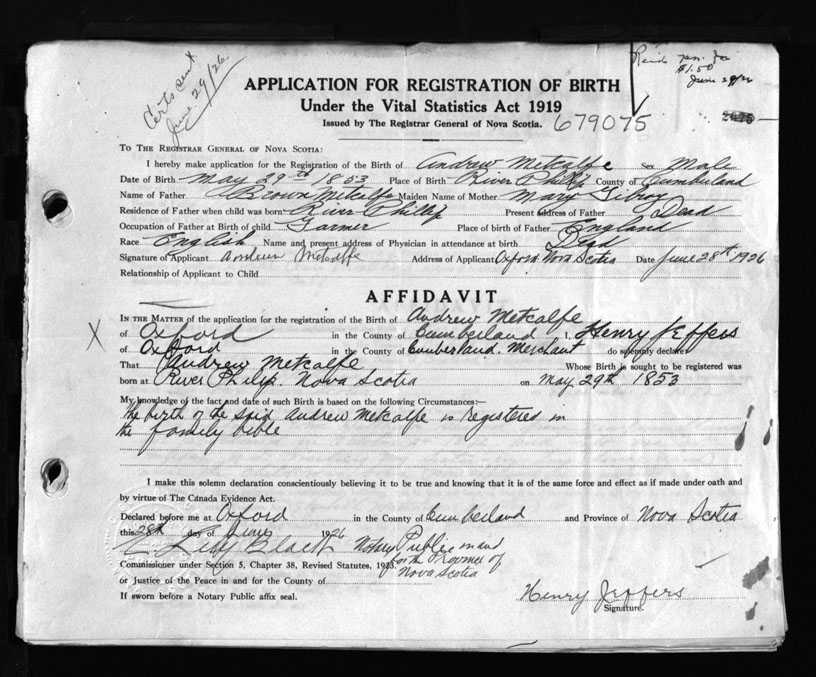 Certs sent
June 29/26
June 29/26
$1.50
APPLICATION FOR REGISTRATION OF BIRTH
Under the Vital Statistics Act 1919
Issued by The Registrar General of Nova Scotia.
679075
TO THE REGISTRAR GENERAL OF NOVA SCOTIA:
I hereby make application for the Registration of the Birth of Andrew Metcalfe Sex Male
Date of Birth May 29th 1853 Place of Birth River Philip County of Cumberland
Name of Father Brown Metcalfe Maiden Name of Mother Mary
Residence of Father when child was born River Phillip Present address of Father Dead
Occupation of Father at Birth of child Farmer Place of birth of Father England
Race English Name and present address of Physician in attendance at birth Dead
Signature of Applicant Andrew Metcalfe Address of Applicant Oxford Nova Scotia Date June 28th 1926
Relationship of Applicant to Child
AFFIDAVIT
IN THE MATTER of the application for the registration of the Birth of Andrew Metcalfe
X of Oxford in the County of Cumberland I, Henry Jeffers
of Oxford in the County of Cumberland. Merchant do solemnly declare
That Andrew Metcalfe Whose Birth is sought to be registered was
born at River Philip. Nova Scotia on May 29th 1853
My knowledge of the fact and date of such Birth is based on the following Circumstances:—
The birth of the said Andrew Metcalfe is Registered in
the family bible
I make this solemn declaration conscientiously believing it to be true and knowing that it is of the same force and effect as if made under oath and
by virtue of The Canada Evidence Act.
Declared before me at Oxford in the County of Cumberland and Province of Nova Scotia
this 28th day of June 1926
Black Notary Public in and
for the Province of
Nova Scotia
Commissioner under Section 5, Chapter 38, Revised Statutes, 1923
or Justice of the Peace in and for the County of
If sworn before a Notary Public affix seal.
Henry Jeffers
Signature.